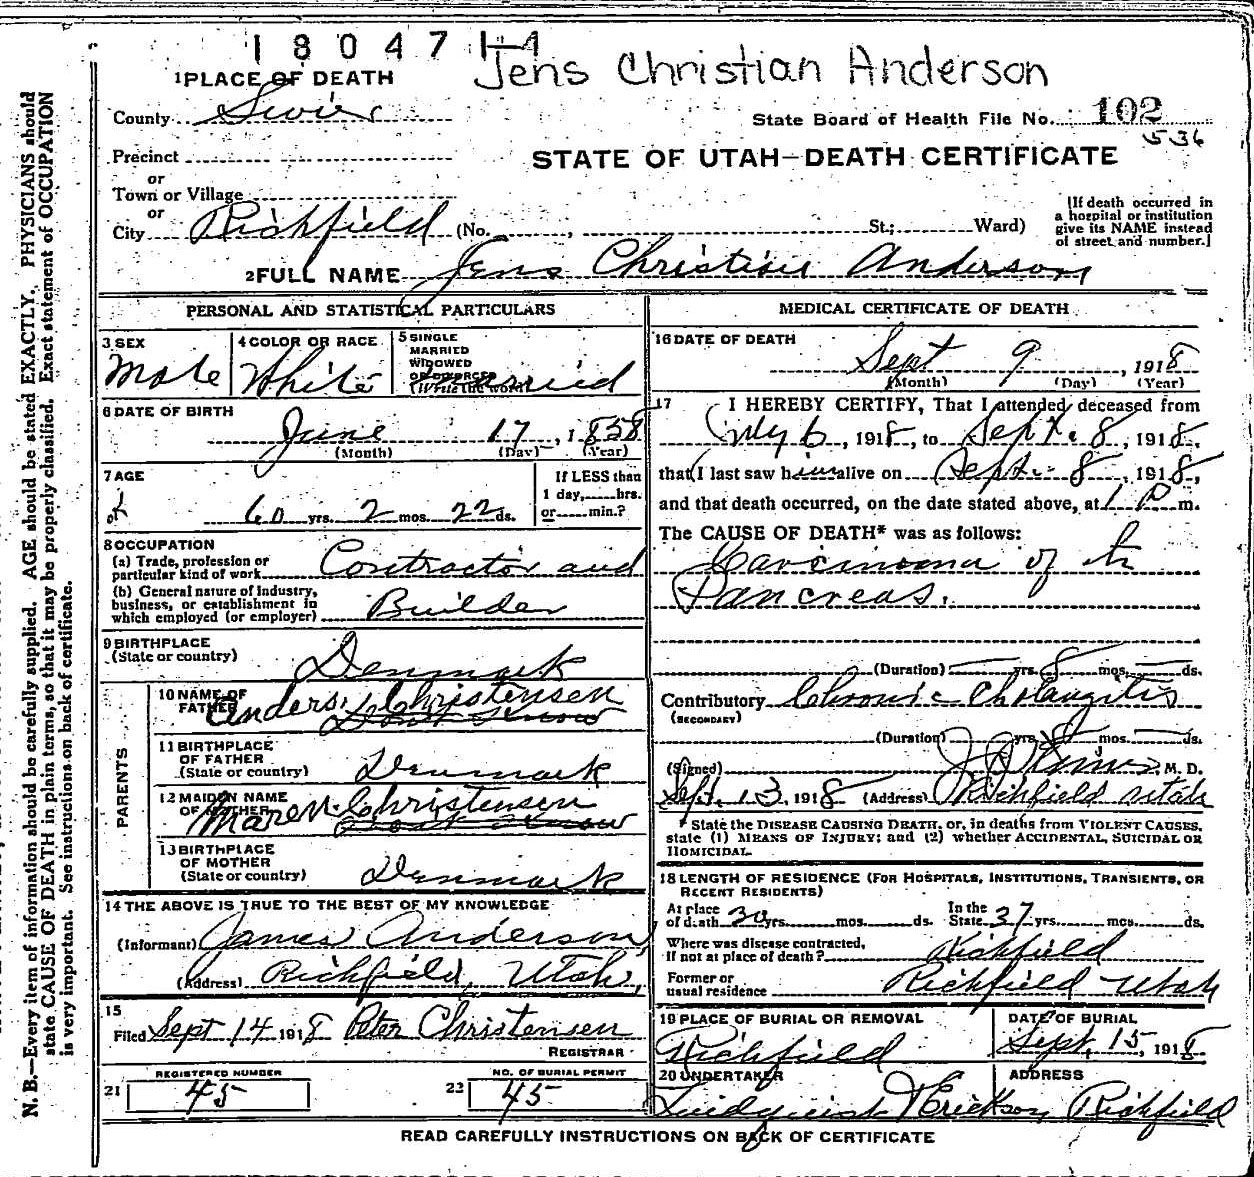 18047 1-4
Jens Christian Anderson
1 PLACE OF DEATH
County Sevier
State Board of Health File No. 102
536
Precinct
or
STATE OF UTAH—DEATH CERTIFICATE
Town or Village
or
City Richfield (No. , St.; Ward)
[If death occurred in a hospital or institution give its NAME instead of street and number.]
2 FULL NAME Jens Christian Anderson
PERSONAL AND STATISTICAL PARTICULARS
3 SEX Male
4 COLOR OR RACE White
5 SINGLE MARRIED WIDOWED OR DIVORCED (Write the word) Married
6 DATE OF BIRTH
June 17, 1858
(Month) (Day) (Year)
7 AGE
60 yrs. 2 mos. 22 ds.
If LESS than 1 day, hrs. or min.?
8 OCCUPATION
(a) Trade, profession or particular kind of work Contractor and
(b) General nature of Industry, business, or establishment in which employed (or employer) Builder
9 BIRTHPLACE
(State or country) Denmark
PARENTS
10 NAME OF FATHER Anders Christensen
Dont Know
11 BIRTHPLACE OF FATHER (State or country) Denmark
12 MAIDEN NAME OF MOTHER Maren Christensen
Dont Know
13 BIRTHPLACE OF MOTHER (State or country) Denmark
14 THE ABOVE IS TRUE TO THE BEST OF MY KNOWLEDGE
(Informant) James Anderson
(Address) Richfield, Utah,
15
Filed Sept 14 1918 Peter Christensen
REGISTRAR
REGISTERED NUMBER
21 45
NO. OF BURIAL PERMIT
22 45
MEDICAL CERTIFICATE OF DEATH
16 DATE OF DEATH
Sept 9, 1918
(Month) (Day) (Year)
17 I HEREBY CERTIFY, That I attended deceased from
6, 1918, to Sept. 8, 1918,
that I last saw him alive on Sept. 8, 1918,
and that death occurred, on the date stated above, at 1 P m.
The CAUSE OF DEATH* was as follows:
Carcinoma of th
Pancreas.
(Duration) yrs. 8 mos. ds.
Contributory Chronic Cholangitis
(SECONDARY)
(Duration) yrs. 8 mos. ds.
(Signed) M. D.
Sept. 13, 1918 (Address) Richfield Utah
* State the DISEASE CAUSING DEATH, or, in deaths from VIOLENT CAUSES, state (1) MEANS OF INJURY; and (2) whether ACCIDENTAL, SUICIDAL OR HOMICIDAL.
18 LENGTH OF RESIDENCE (FOR HOSPITALS, INSTITUTIONS, TRANSIENTS, OR RECENT RESIDENTS)
At place of death 30 yrs. mos. ds. In the State 37 yrs. mos. ds.
Where was disease contracted, If not at place of death? Richfield
Former or usual residence Richfield Utah
19 PLACE OF BURIAL OR REMOVAL
Richfield
DATE OF BURIAL
Sept, 15, 1918
20 UNDERTAKER
Lindquist & Erickson
ADDRESS
Richfield
READ CAREFULLY INSTRUCTIONS ON BACK OF CERTIFICATE
N. B.—Every item of information should be carefully supplied. AGE should be stated EXACTLY. PHYSICIANS should
state CAUSE OF DEATH in plain terms, so that it may be properly classified. Exact statement of OCCUPATION
is very important. See instructions on back of certificate.